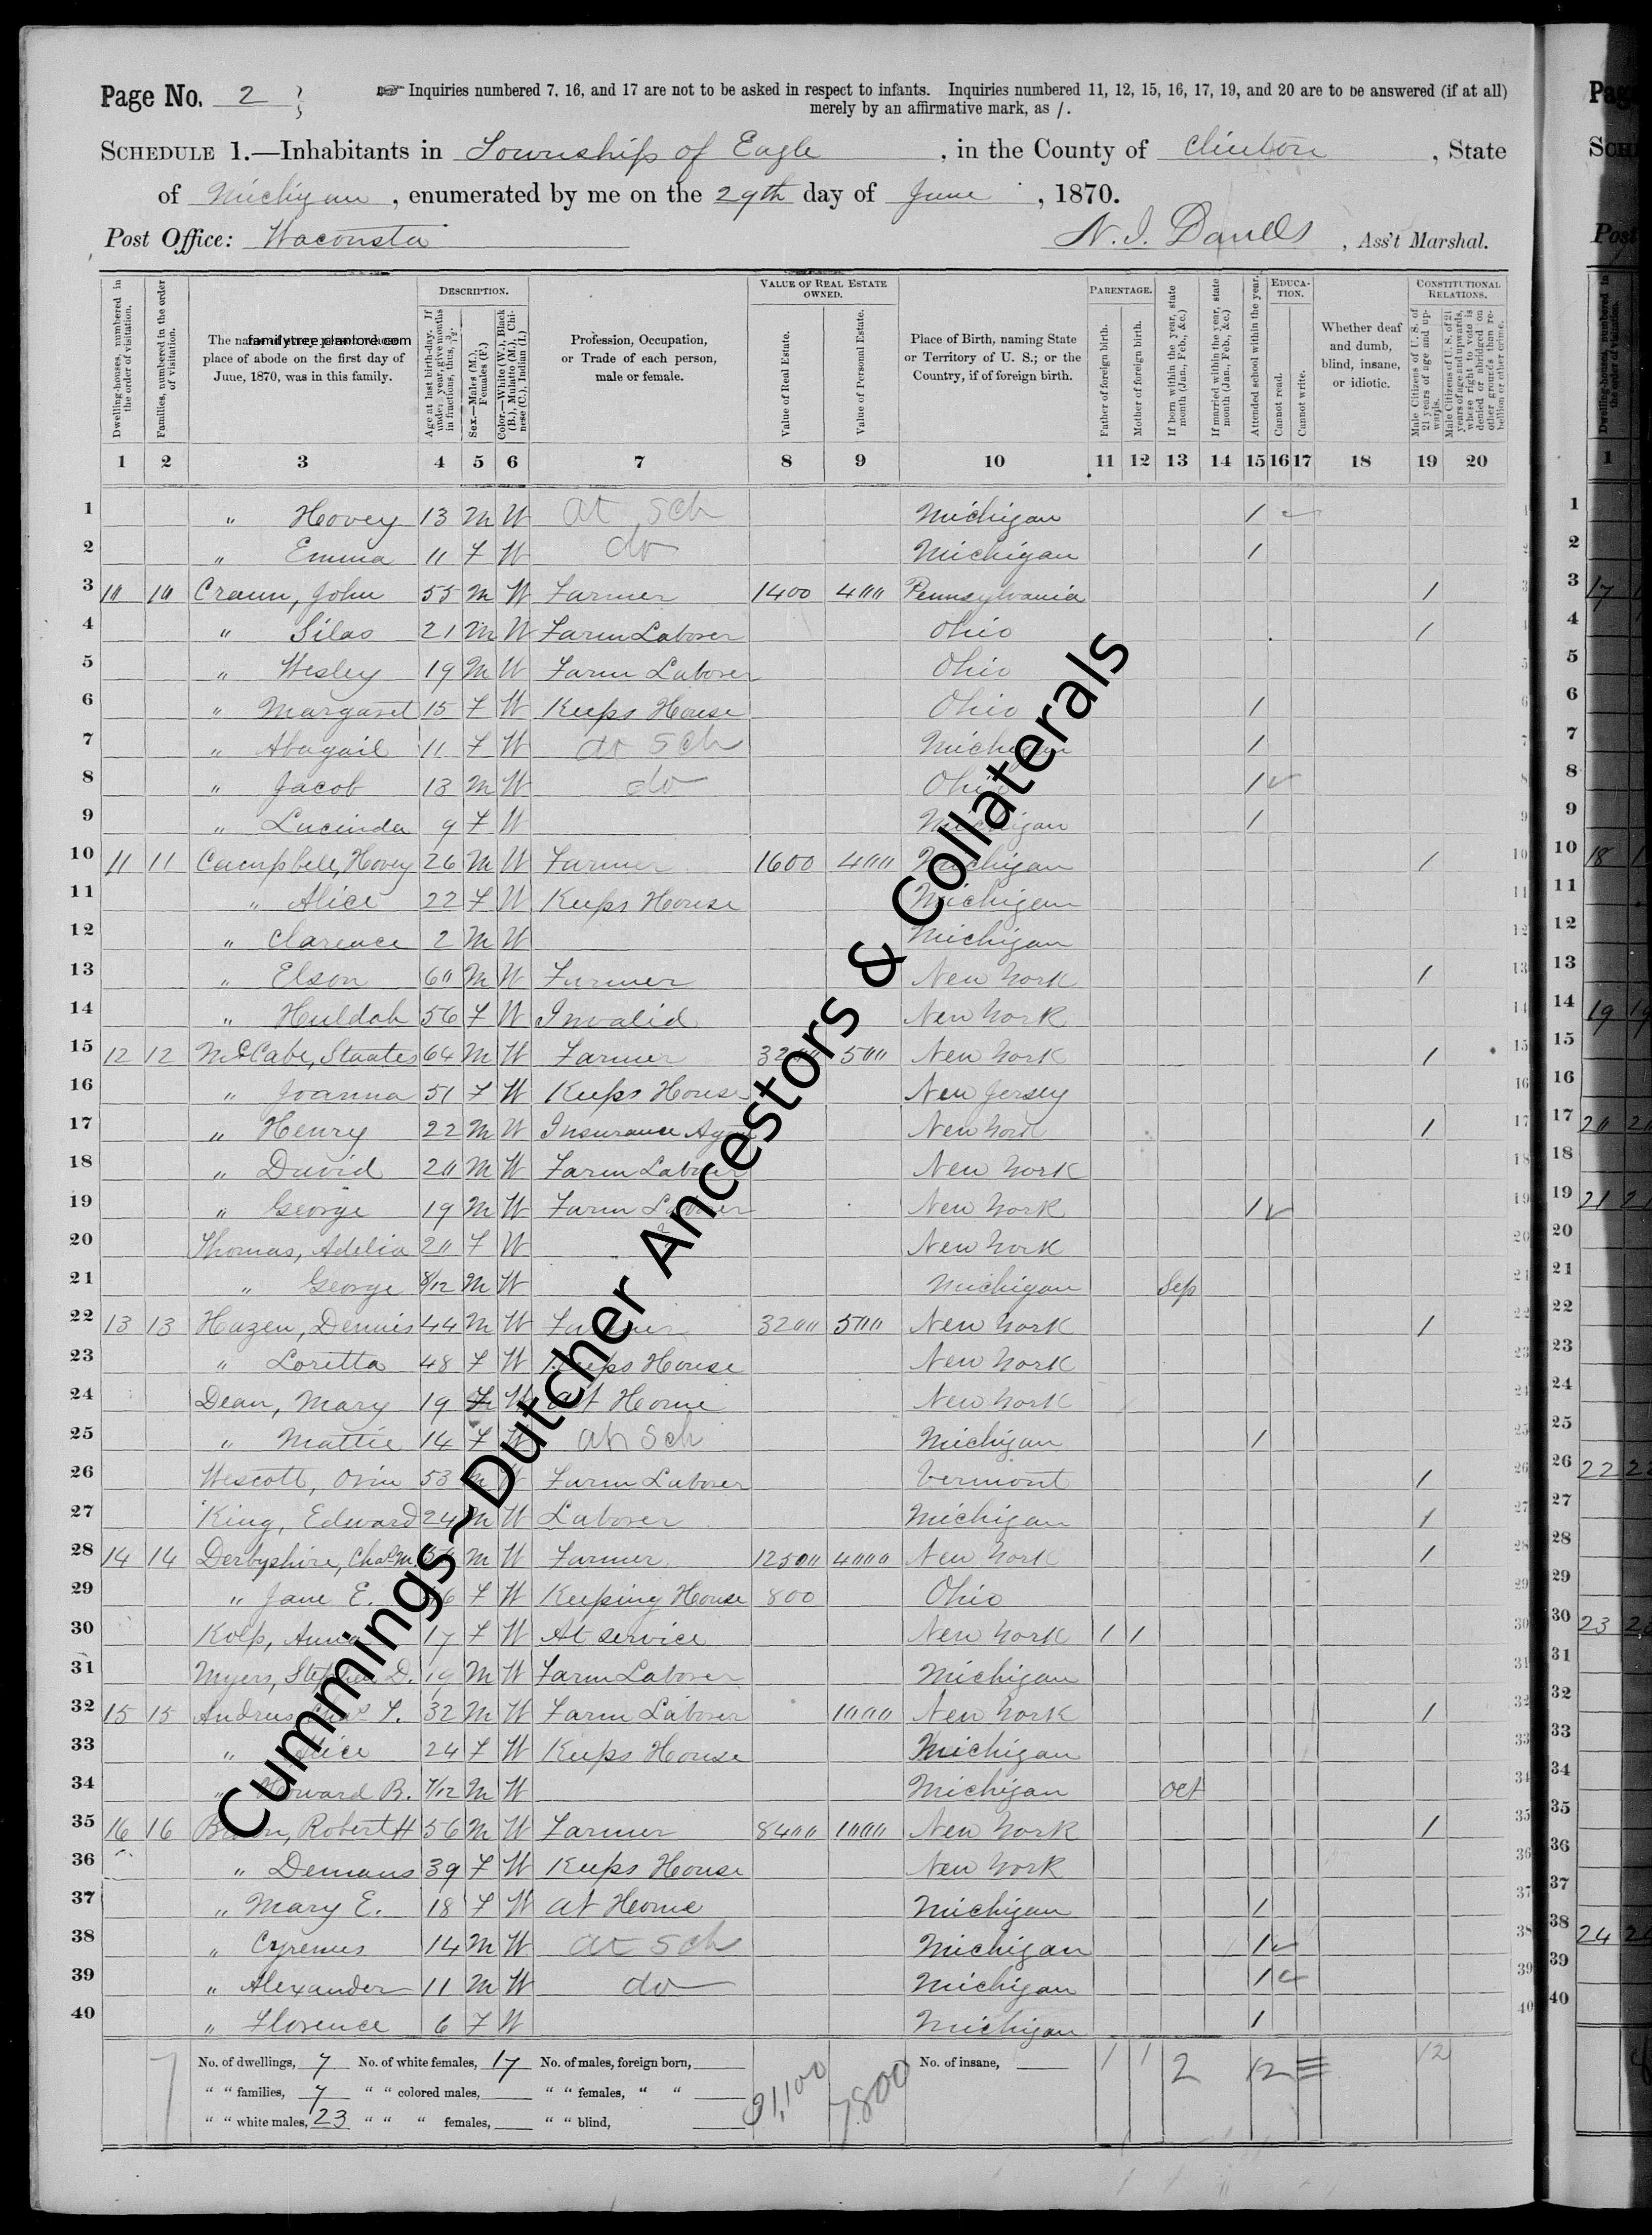 Page No. 2
Inquiries numbered 7, 16, and 17 are not to be asked in respect to infants. Inquiries numbered 11, 12, 15, 16, 17, 19, and 20 are to be answered (if at all)
merely by an affirmative mark, as /.
SCHEDULE 1.—Inhabitants in Township of Eagle, in the County of Clinton, State
of Michigan, enumerated by me on the 29th day of June, 1870.
Post Office: Wacousta
N. I. Daniells, Ass't Marshal.
familytree.plantord.com
DESCRIPTION. VALUE OF REAL ESTATE OWNED. PARENTAGE. EDUCATION. CONSTITUTIONAL RELATIONS.
Dwelling-houses, numbered in the order of visitation.
Families, numbered in the order of visitation.
place of abode on the first day of June, 1870, was in this family.
Age at last birth-day. If under 1 year, give months in fractions, thus, 3/12.
Sex.—Males (M.), Females (F.)
Color.—White (W.), Black (B.), Mulatto (M.), Chinese (C.), Indian (I.)
Profession, Occupation, or Trade of each person, male or female.
Value of Real Estate.
Value of Personal Estate.
Place of Birth, naming State or Territory of U. S.; or the Country, if of foreign birth.
Father of foreign birth.
Mother of foreign birth.
If born within the year, state month (Jan., Feb., &c.)
If married within the year, state month (Jan., Feb., &c.)
Attended school within the year.
Cannot read.
Cannot write.
Whether deaf and dumb, blind, insane, or idiotic.
Male Citizens of U. S. of 21 years of age and upwards.
Male Citizens of U. S. of 21 years of age and upwards, where right to vote is denied or abridged on other grounds than rebellion or other crime.
1 2 3 4 5 6 7 8 9 10 11 12 13 14 15 16 17 18 19 20
1 " Hovey 13 M W at sch Michigan /
2 " Emma 11 F W do Michigan /
3 10 10 Craun, John 55 M W Farmer 1400 400 Pennsylvania /
4 " Silas 21 M W Farm Laborer Ohio /
5 " Wesley 19 M W Farm Laborer Ohio
6 " Margaret 15 F W Keeps House Ohio /
7 " Abagail 11 F W at Sch Michigan /
8 " Jacob 13 M W do Ohio /
9 " Lucinda 9 F W Michigan /
10 11 11 Campbell, Hovey 26 M W Farmer 1600 400 Michigan /
11 " Alice 22 F W Keeps House Michigan
12 " Clarence 2 M W Michigan
13 " Elson 60 M W Farmer New York /
14 " Huldah 56 F W Invalid New York
15 12 12 McCabe, Staates 64 M W Farmer 3200 500 New York /
16 " Joanna 51 F W Keeps House New Jersey
17 " Henry 22 M W Insurance Agent New York /
18 " David 20 M W Farm Laborer New York
19 " George 19 M W Farm Laborer New York /
20 Thomas, Adelia 20 F W New York
21 " George 8/12 M W Michigan Sep
22 13 13 Hazen, Dennis 44 M W Farmer 3200 500 New York /
23 " Loretta 48 F W Keeps House New York
24 Dean, Mary 19 F W at Home New York
25 " Mattie 14 F W at Sch Michigan /
26 Wescott, Orin 53 M W Farm Laborer Vermont /
27 King, Edward 24 M W Laborer Michigan /
28 14 14 Derbyshire, Chas M. M W Farmer 12500 4000 New York /
29 " Jane E. F W Keeping House 800 Ohio
30 Kolp, Anna 17 F W At service New York / /
31 Myers, Stephen D. 19 M W Farm Laborer Michigan
32 15 15 Andrus, Chas. 32 M W Farm Laborer 1000 New York /
33 " Alice 24 F W Keeps House Michigan
34 " Howard R. 7/12 M W Michigan Oct
35 16 16 Robert H 56 M W Farmer 8400 1000 New York /
36 " Demans 39 F W Keeps House New York
37 " Mary E. 18 F W at Home Michigan /
38 " Cyrenus 14 M W at sch Michigan /
39 " Alexander 11 M W do Michigan /
40 " Florence 6 F W Michigan /
No. of dwellings, 7 No. of white females, 17 No. of males, foreign born, No. of insane,
" " families, 7 " " colored males, " " females, " "
" " white males, 23 " " " females, " " blind,
31,100 7800 1 1 2 12 12
Cummings~Dutcher Ancestors & Collaterals